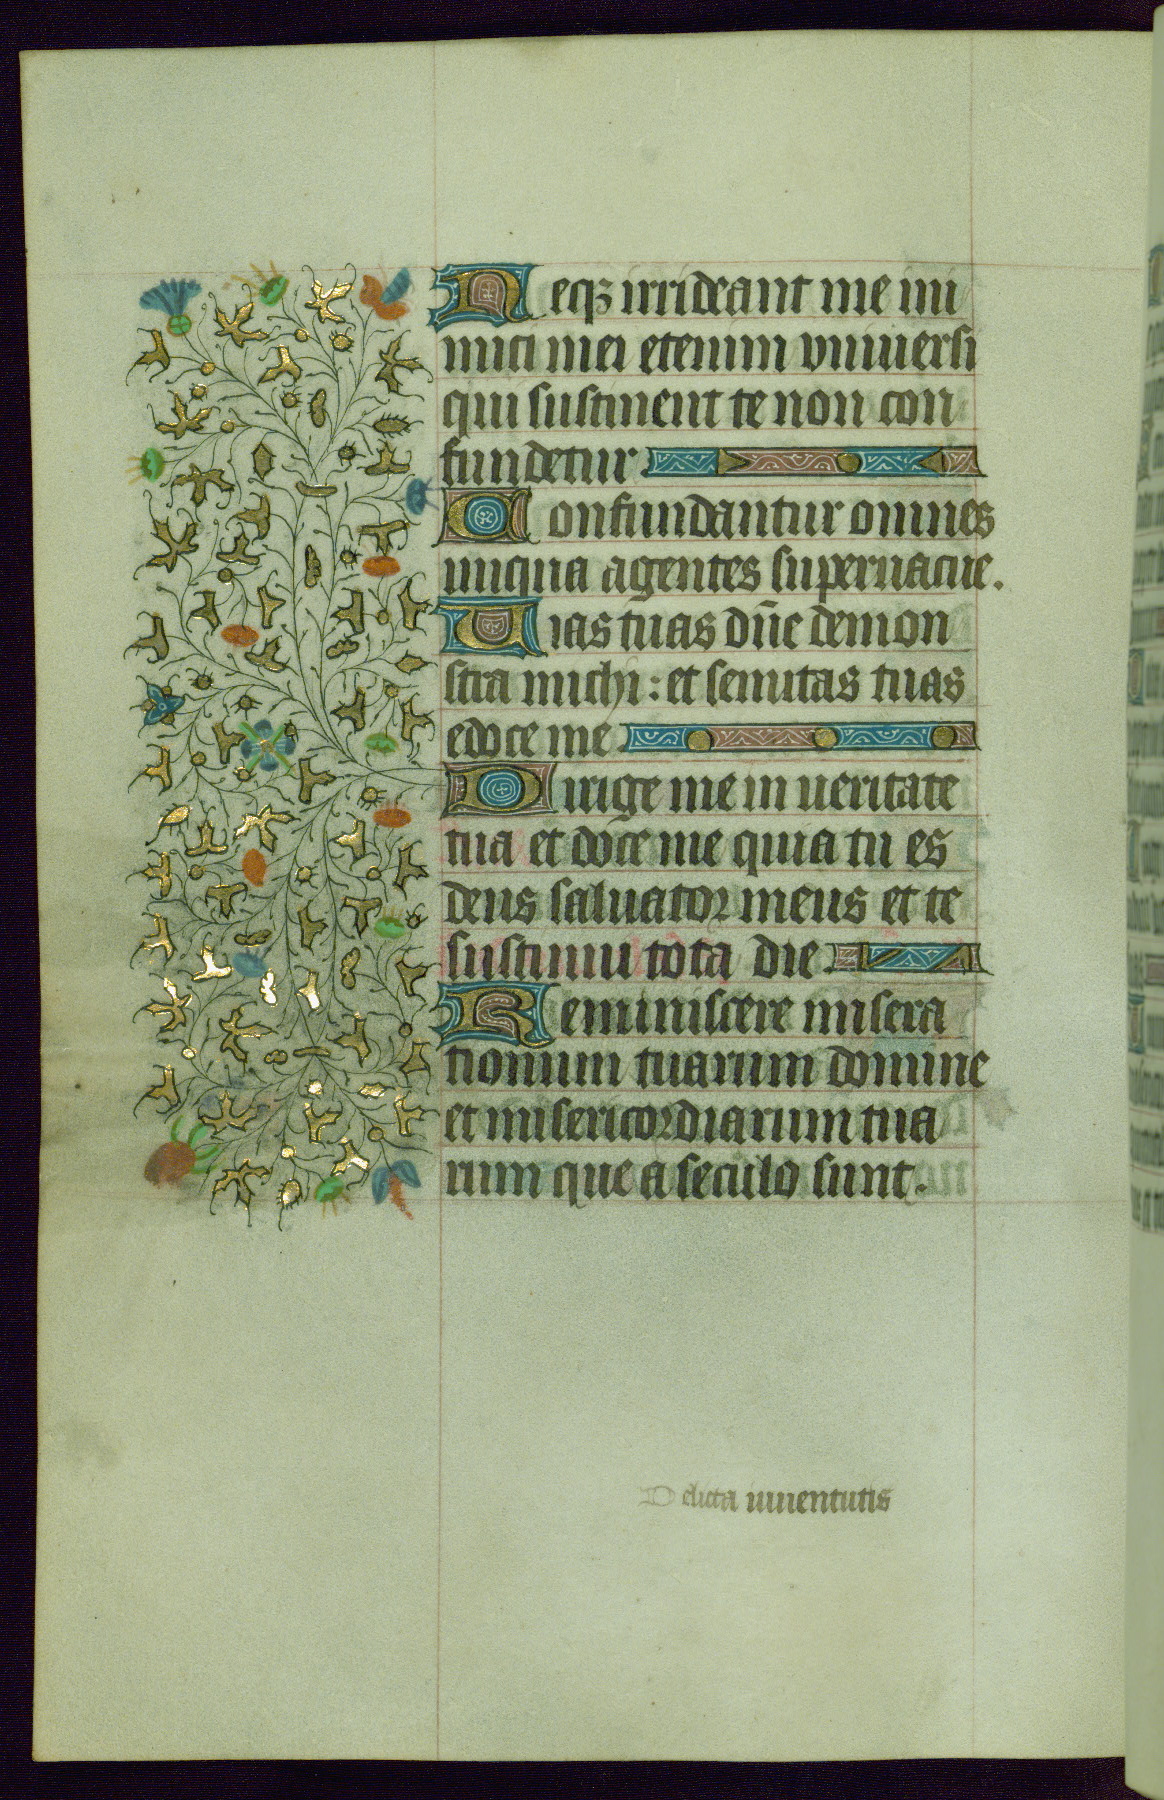 Neqꝫ irrideant me ini
mici mei etenim vniuersi
qui sustinent te non con
fundetur
Confundantur omnes
iniqua agentes superuacue.
Uias tuas dn̄e demon
stra michi : et semitas tuas
edoce me
Dirige me in ueritate
tua et doce me quia tu es
deus saluator meus et te
sustinui tota die
Reminiscere misera
tionum tuarum domine
et misericordiarum tua
rum que a seculo sunt.
Delicta iuuentutis